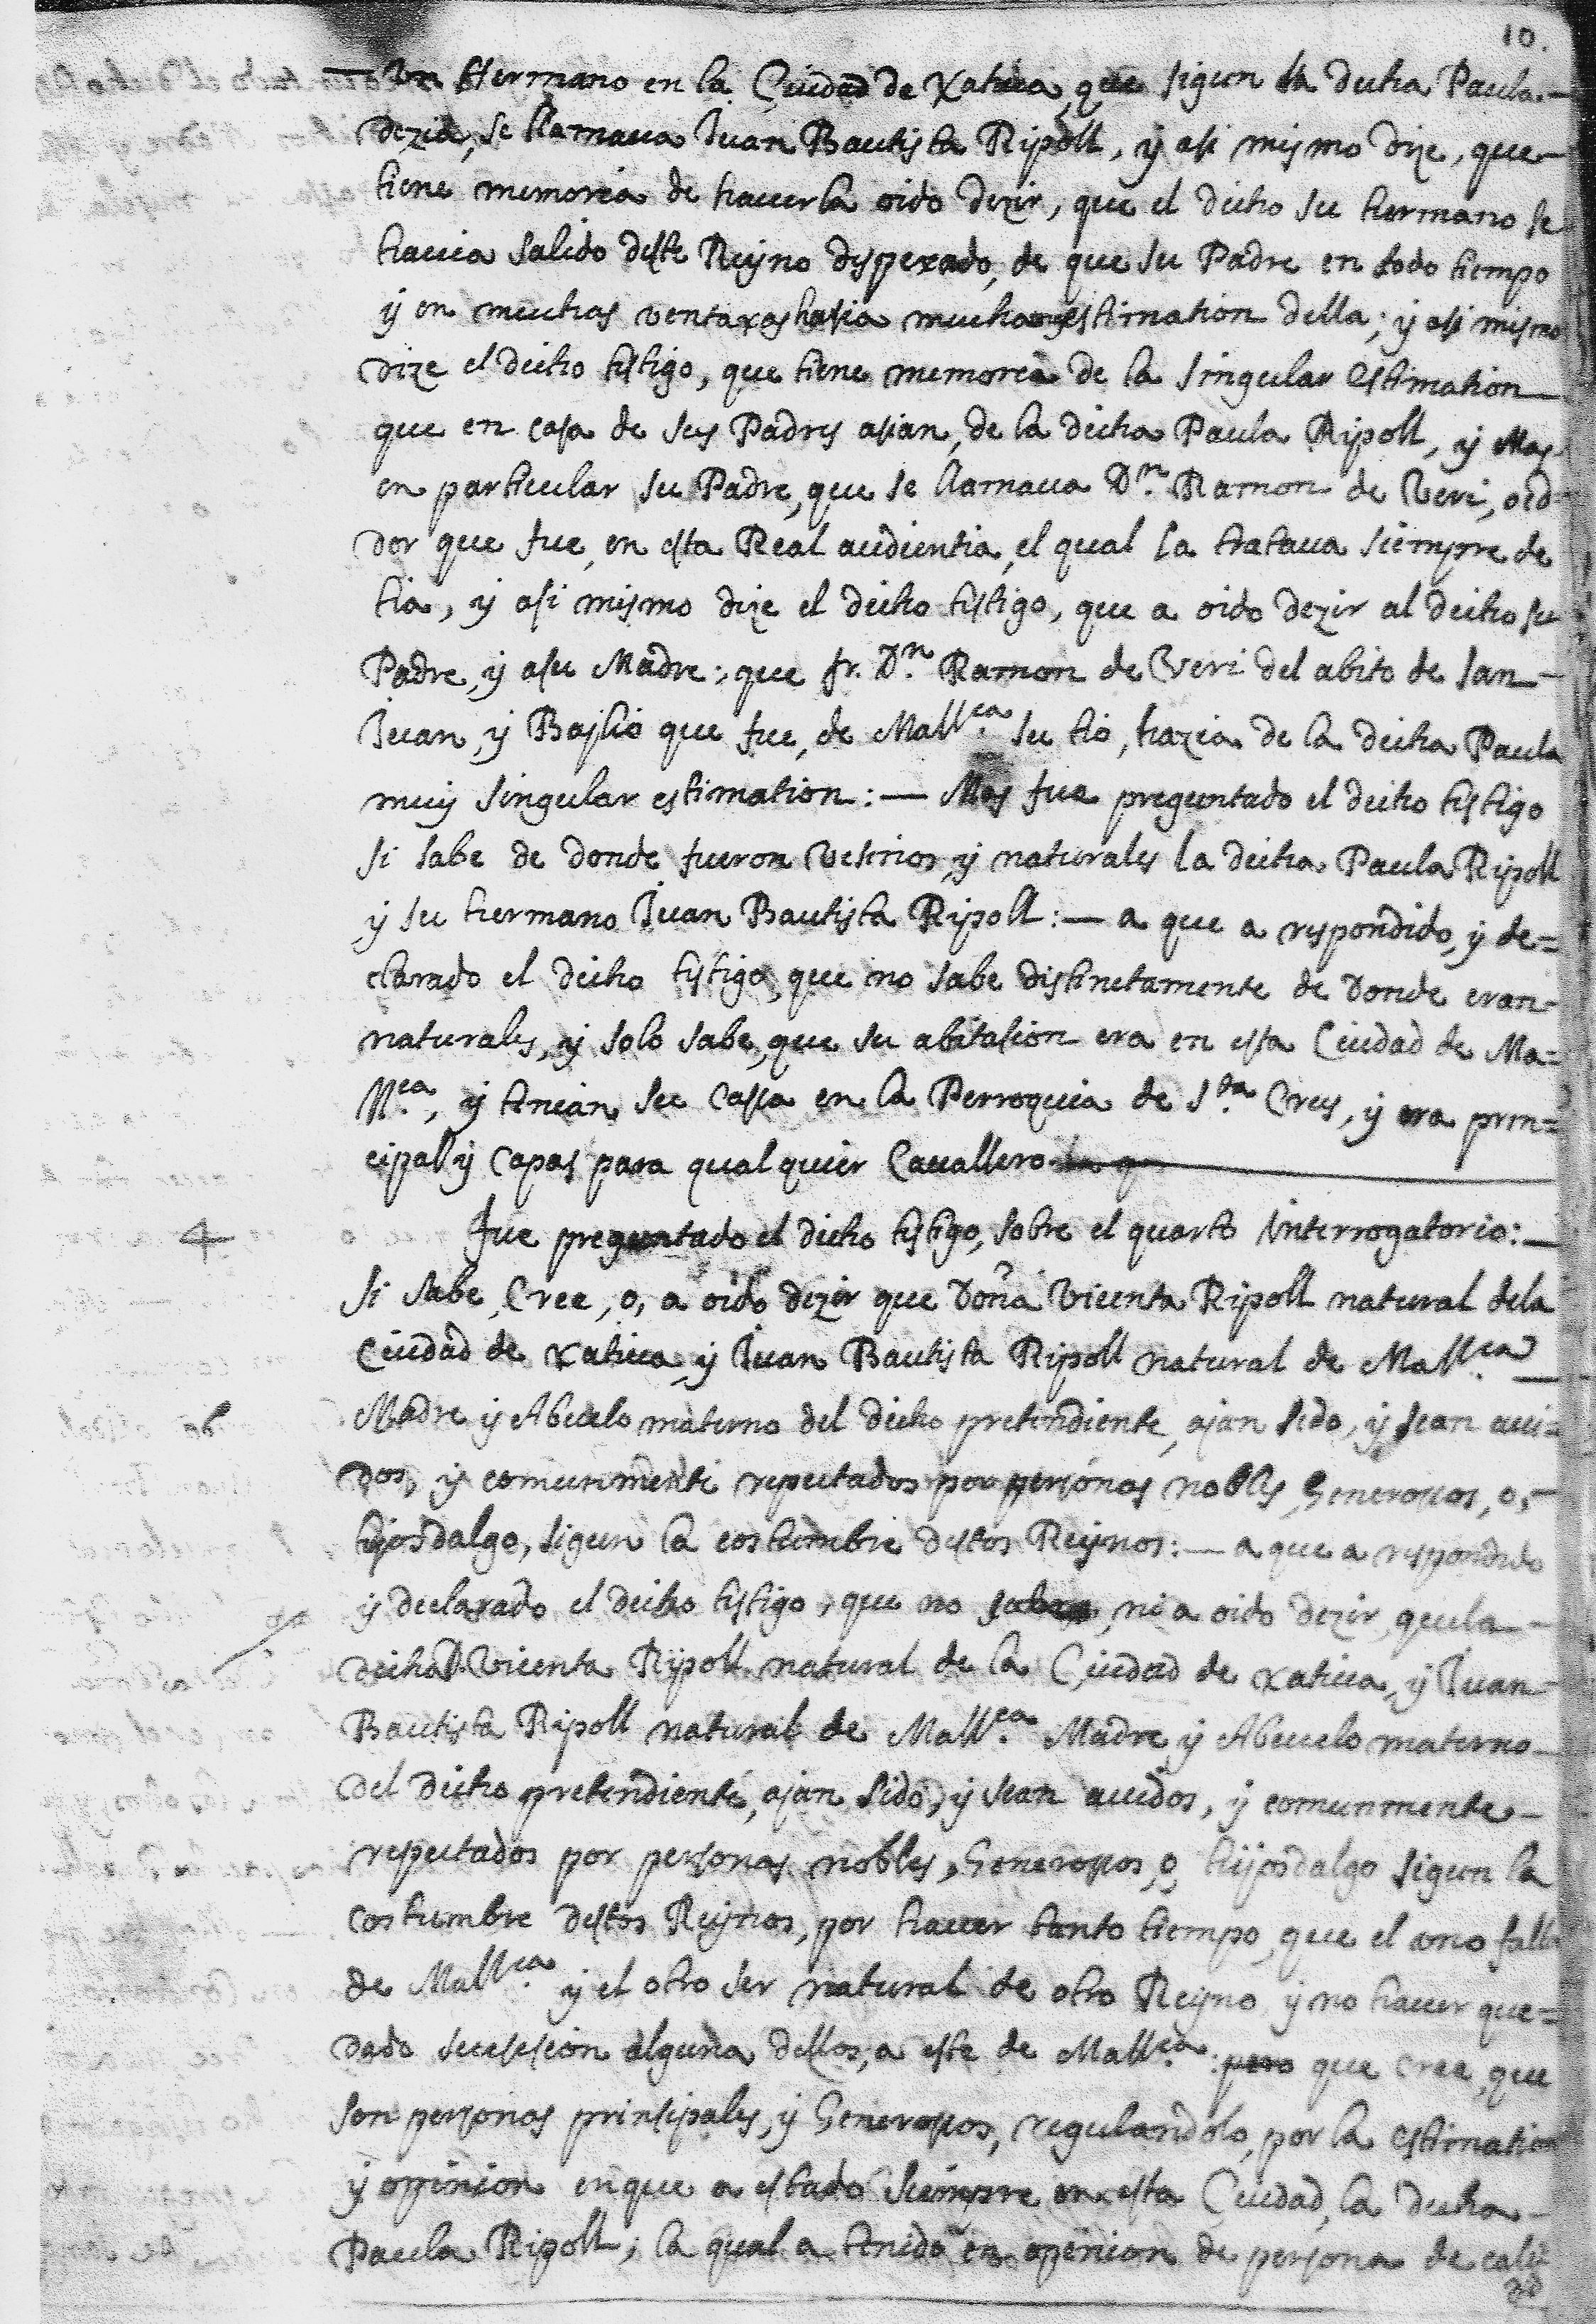 10.
Un Hermano en la Ciudad de Xativa, que sigun la dicha Paula.—
dezia, se llamava Juan Bautista Ripoll, y asi mismo dize, que—
tiene memoria de haverla oido dezir, que el dicho su hermano se
havia salido deste Reyno desperado, de que su Padre en todo tiempo
y en muchas ventaxas hasia mucha estimation della; y asi mismo
dize el dicho testigo, que tiene memoria de la singular estimation—
que en casa de sus Padres asian, de la dicha Paula Ripoll, y Mas
en particular su Padre, que se llamava Dn. Ramon de Veri, oid-
dor que fue, en esta Real audientia, el qual la tratava siempre de
tia, y asi mismo dize el dicho testigo, que a oido dezir al dicho su
Padre, y asu Madre; que fr. Dn. Ramon de Veri del abito de san—
Juan, y Baylio que fue, de Mallca. su tio, hazia de la dicha Paula
muy singular estimation:— Mas fue preguntado el dicho testigo
si sabe de donde fueron vesinos, y naturales la dicha Paula Ripoll
y su hermano Juan Bautista Ripoll:— a que a respondido, y de=
clarado el dicho testigo, que no sabe distinctamente de donde eran-
naturales, y solo sabe, que su abitasion era en esta Ciudad de Ma=
llca., y tenian su cassa en la Perroquia de Sta. Creus, y era prin=
cipal y capas para qual quier Cavallero
4
Fue preguntado el dicho testigo, sobre el quarto interrogatorio:—
si sabe, Cree, o, a oido dezir que Doña Vicenta Ripoll natural dela
Ciudad de Xativa, y Juan Bautista Ripoll natural de Mallca.—
Madre y Abuelo materno del dicho pretendiente, ajan sido, y sean avi=
dos, y comunmente reputados por personas nobles, Generosos, o,—
hijosdalgo, sigun la costumbre destos Reynos:— a que a respondido
y declarado el dicho testigo, que no sabe, ni a oido dezir, quela—
dicha D. Vicenta Ripoll natural de la Ciudad de Xativa, y Juan—
Bautista Ripoll natural de Mallca. Madre y Abuelo materno—
del dicho pretendiente, ajan sido, y sean avidos, y comunmente—
reputados por personas nobles, Generosos, o, hijosdalgo sigun la
costumbre destos Reynos, por haver tanto tiempo, que el uno falta
de Mallca. y el otro ser natural de otro Reyno y no haver que=
dado susession alguna dellos, a este de Mallca.: pero que cree, que
son personas prinsipales, y Generosos, regulandolo, por la estimation
y opinion enque a estado siempre en esta Ciudad, la dicha—
Paula Ripoll; la qual a tenido en opinion de persona de cali-